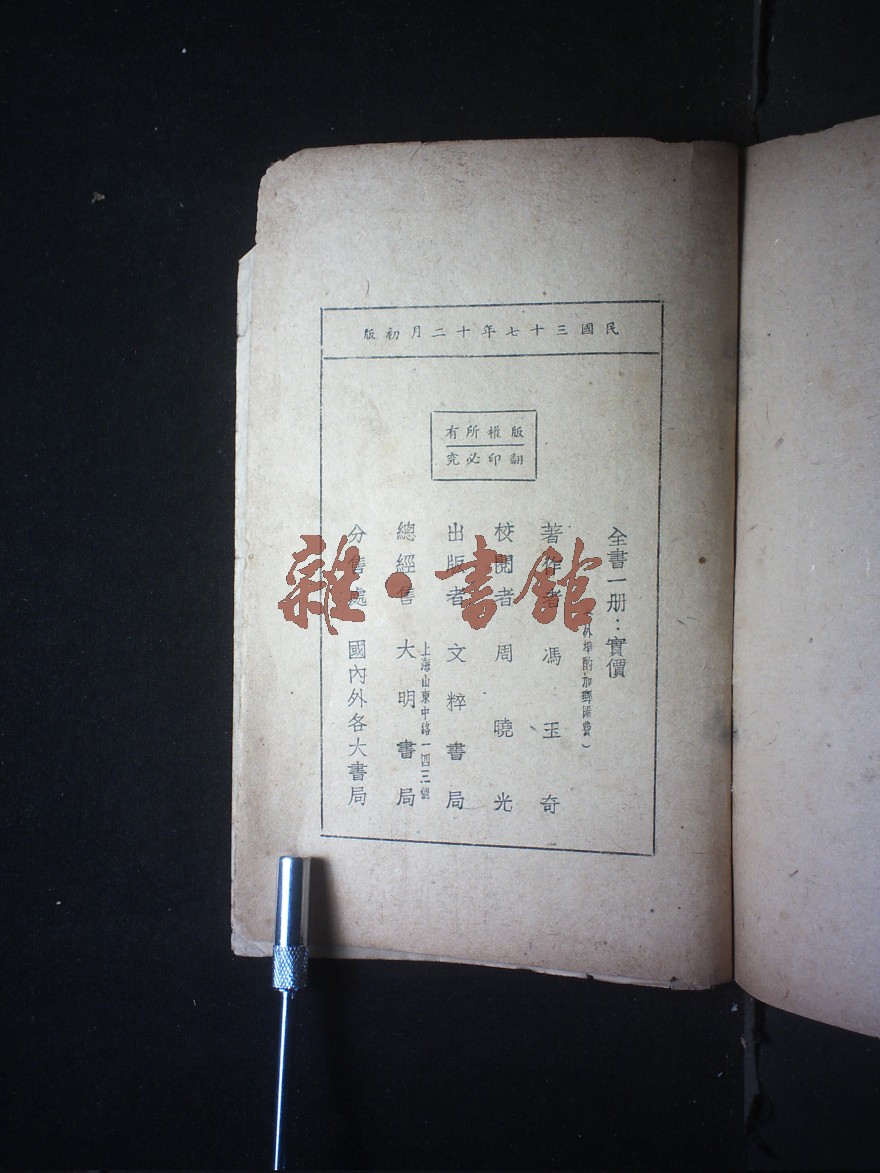 民國三十七年十二月初版
版權所有
翻印必究
全書一册：實價
（外埠酌加郵匯費）
著作者　馮玉奇
校閱者　周曉光
出版者　文粹書局
上海山東中路一四三號
總經售　大明書局
分售處　國內外各大書局
雜·書館